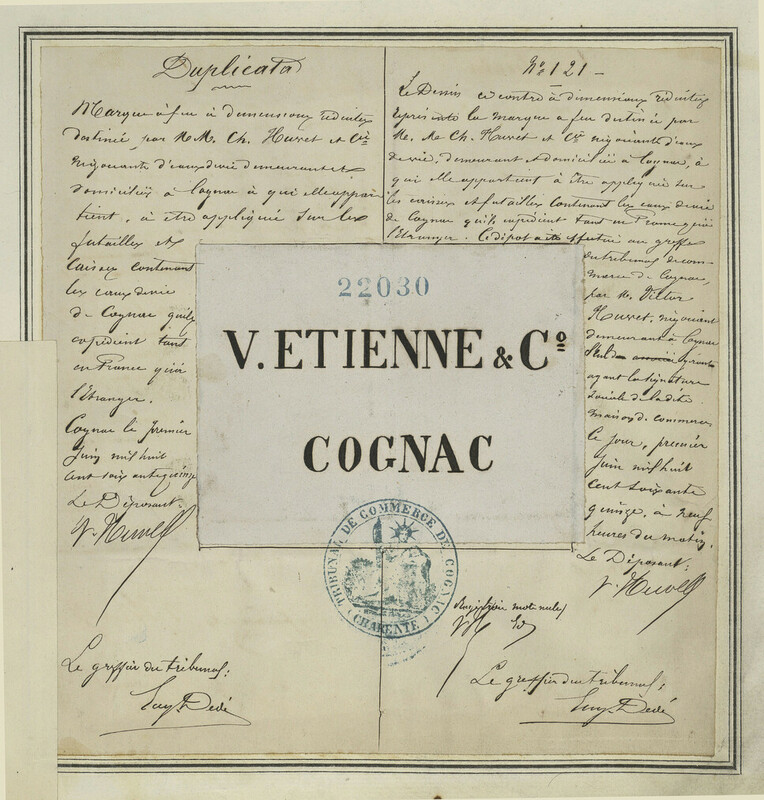 Duplicata
Marque à feu à dimensions réduites
destinée, par M.M. Ch. Huvet et Cie
négociants d'eaux de vie demeurant et
domiciliés à Cognac à qui elle appar
tient, à être appliqué sur les
futailles et
caisses contenant
les eaux de vie
de Cognac qu'ils
expédient tant
en France qu'à
l'Etranger.
Cognac le premier
Juin mil huit
cent soixante quinze
Le Déposant.
V. Huvet
Le greffier du tribunal;
Eug. Dedé
No 121 -
Le Dessin ci contre à dimensions réduites
représente la marque à feu destinée par
M. M. Ch. Huvet et Cie négociants d'eaux
de vie, demeurant et domiciliés à Cognac, à
qui elle appartient à être appliquée sur
les caisses et futailles contenant les eaux de vie
de Cognac qu'ils expédient tant en France qu'à
l'Etranger. Ce dépôt a été effectué au greffe
du tribunal de com
merce de Cognac,
par M. Victor
Huvet, négociant
demeurant à Cognac
gérant
ayant la signature
sociale de la dite
maison de commerce
le jour, premier
Juin mil huit
cent soixante
quinze, à neuf
heures du matin.
Le Déposant;
V. Huvet
mot nul
Le greffier du tribunal;
Eug. Dedé
22030
V. ETIENNE & Co
COGNAC
TRIBUNAL DE COMMERCE DE COGNAC
(CHARENTE)